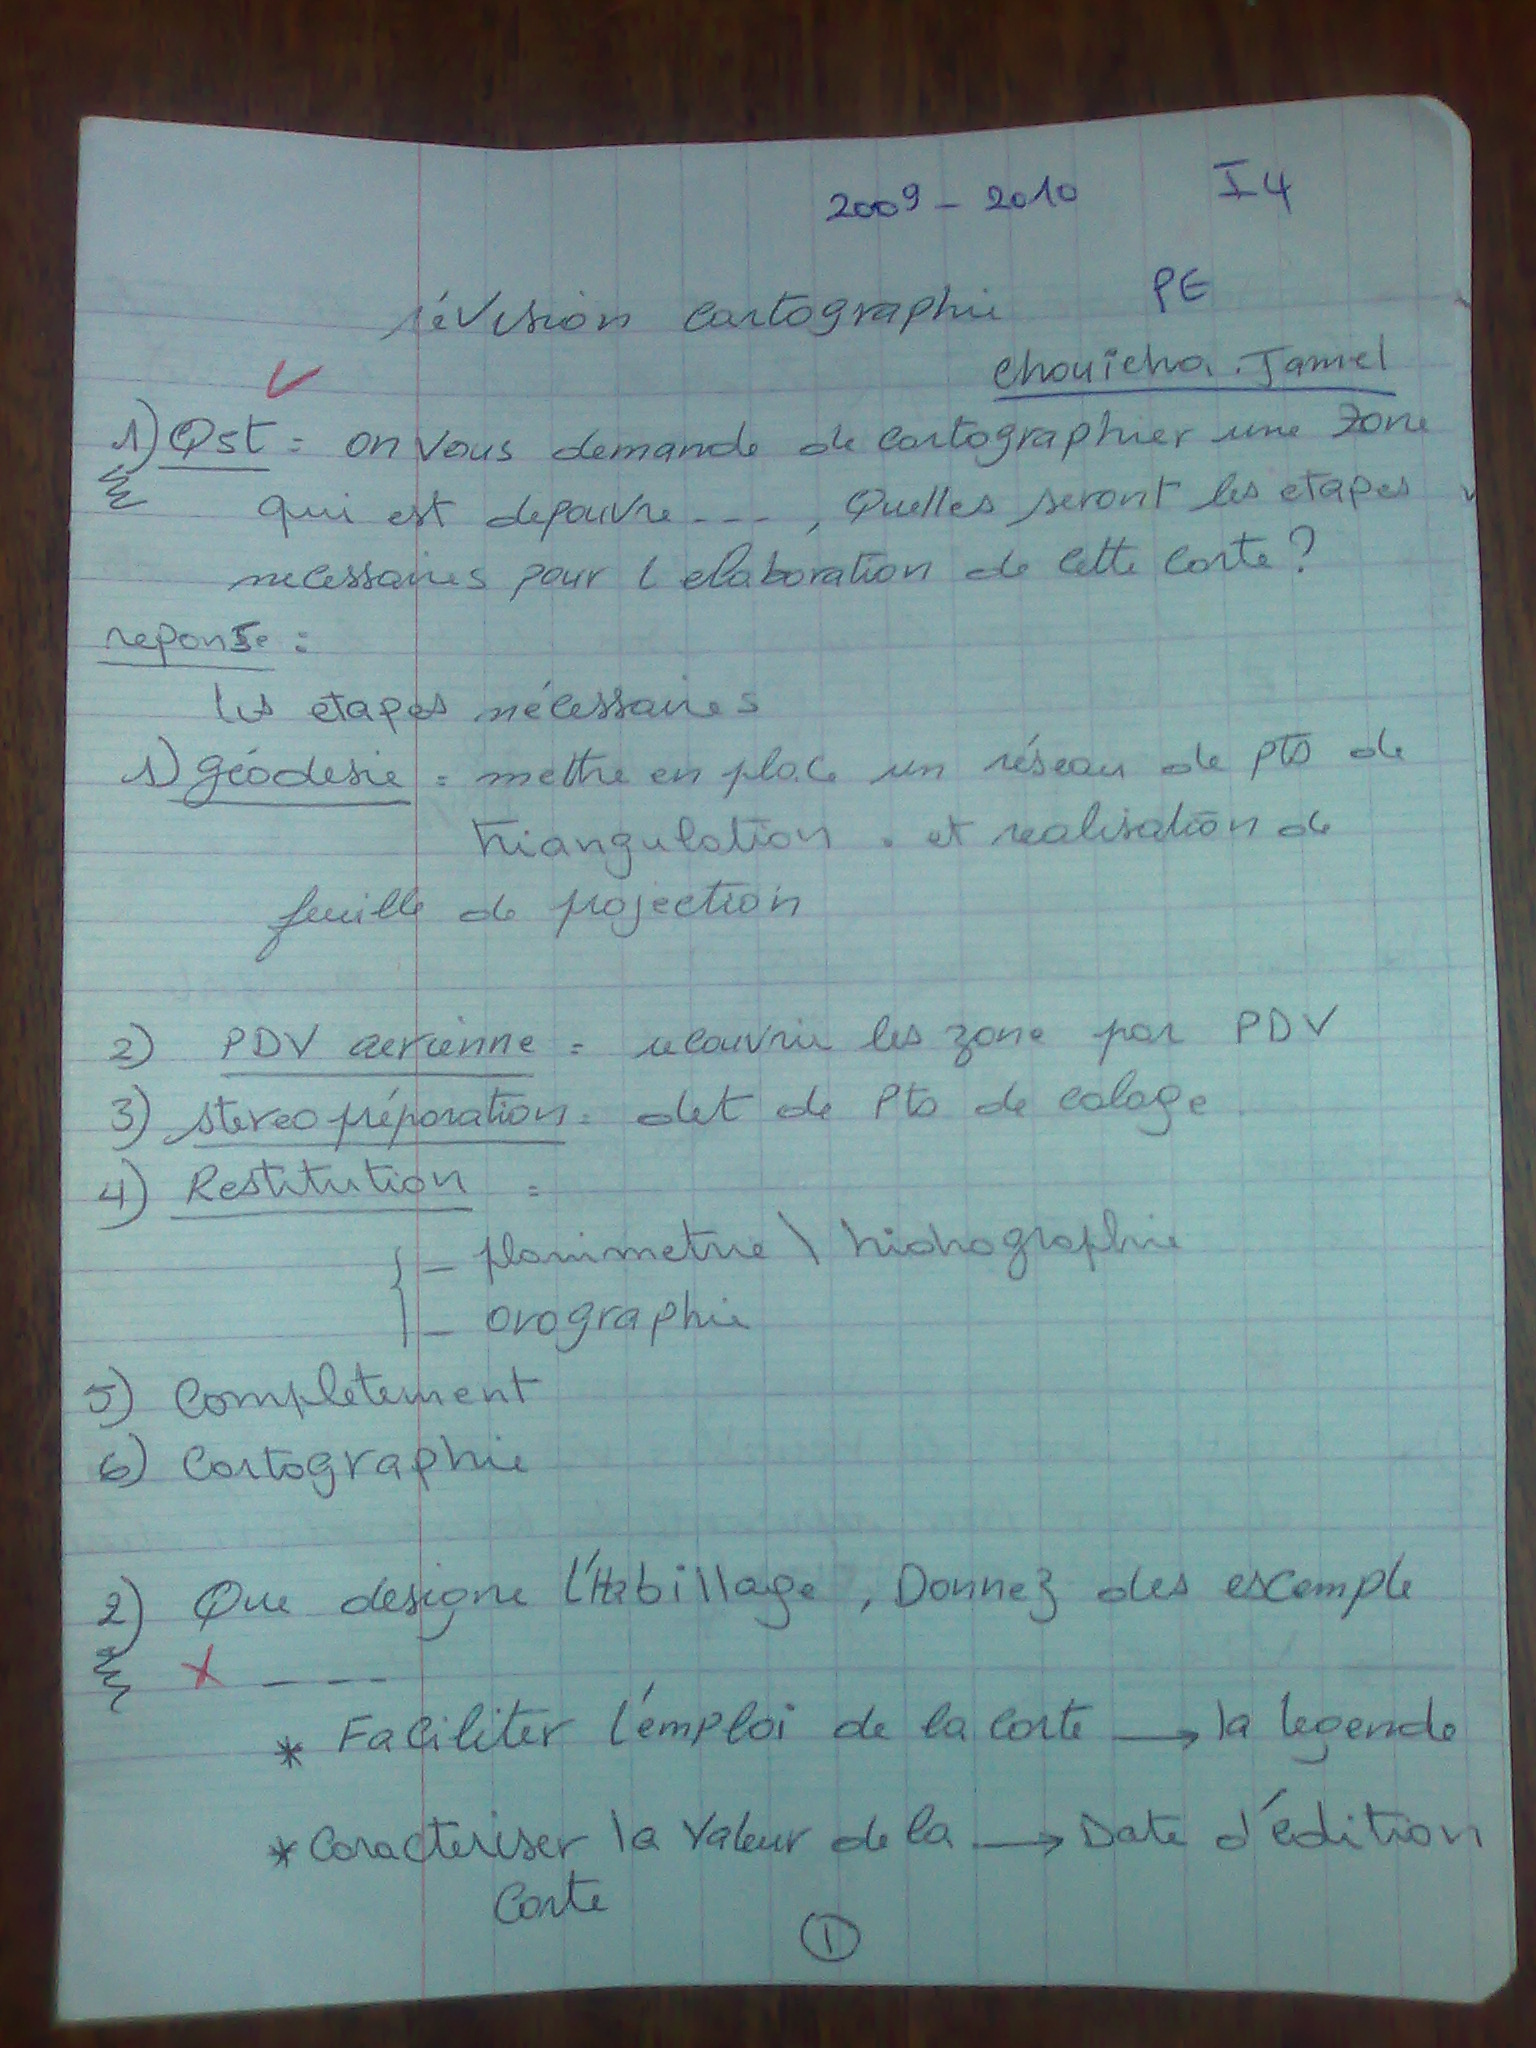 2009 - 2010 I4
révision cartographie PE
Chouicha. Jamel
1) Qst : on vous demande de cartographier une zone
qui est depouvre ---, Quelles seront les etapes
necessaires pour l elaboration de cette carte?
reponse :
les etapes nécessaires
1) géodesie : mettre en place un réseau de pts de
triangulation . et realisation de
feuille de projection
2) PDV aerienne : recouvrir les zone par PDV
3) stereo préparation : det de Pts de calage
4) Restitution :
{ - planimetrie \ hidrographie
- orographie
5) Completement
6) Cartographie
2) Que designe l'Habillage, Donnez des escemple
x ----
* Faciliter l'emploi de la carte → la legende
* Caracteriser la Valeur de la → Date d'édition
Carte
1